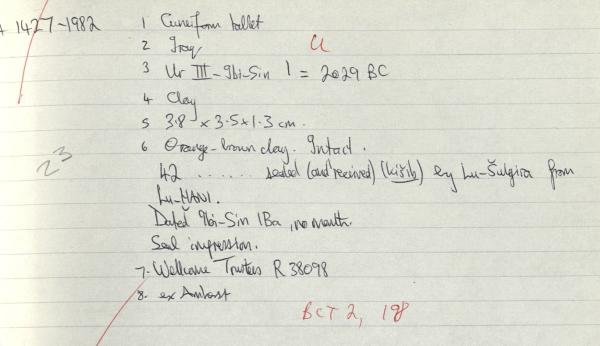 A 1427-1982
1 Cuneiform tablet
2 Iraq
U
3 Ur III - Ibi-Sin 1 = 2029 BC
4 Clay
5 3.8 x 3.5 x 1.3 cm.
6 Orange-brown clay. Intact.
42 ...... sealed (and received) (kišib) by Lu-Šulgira from
Lu-HANI.
Dated Ibi-Sin 1Ba, no month.
Seal impression.
7. Wellcome Trustees R 38098
8. ex
BCT 2, 198
23